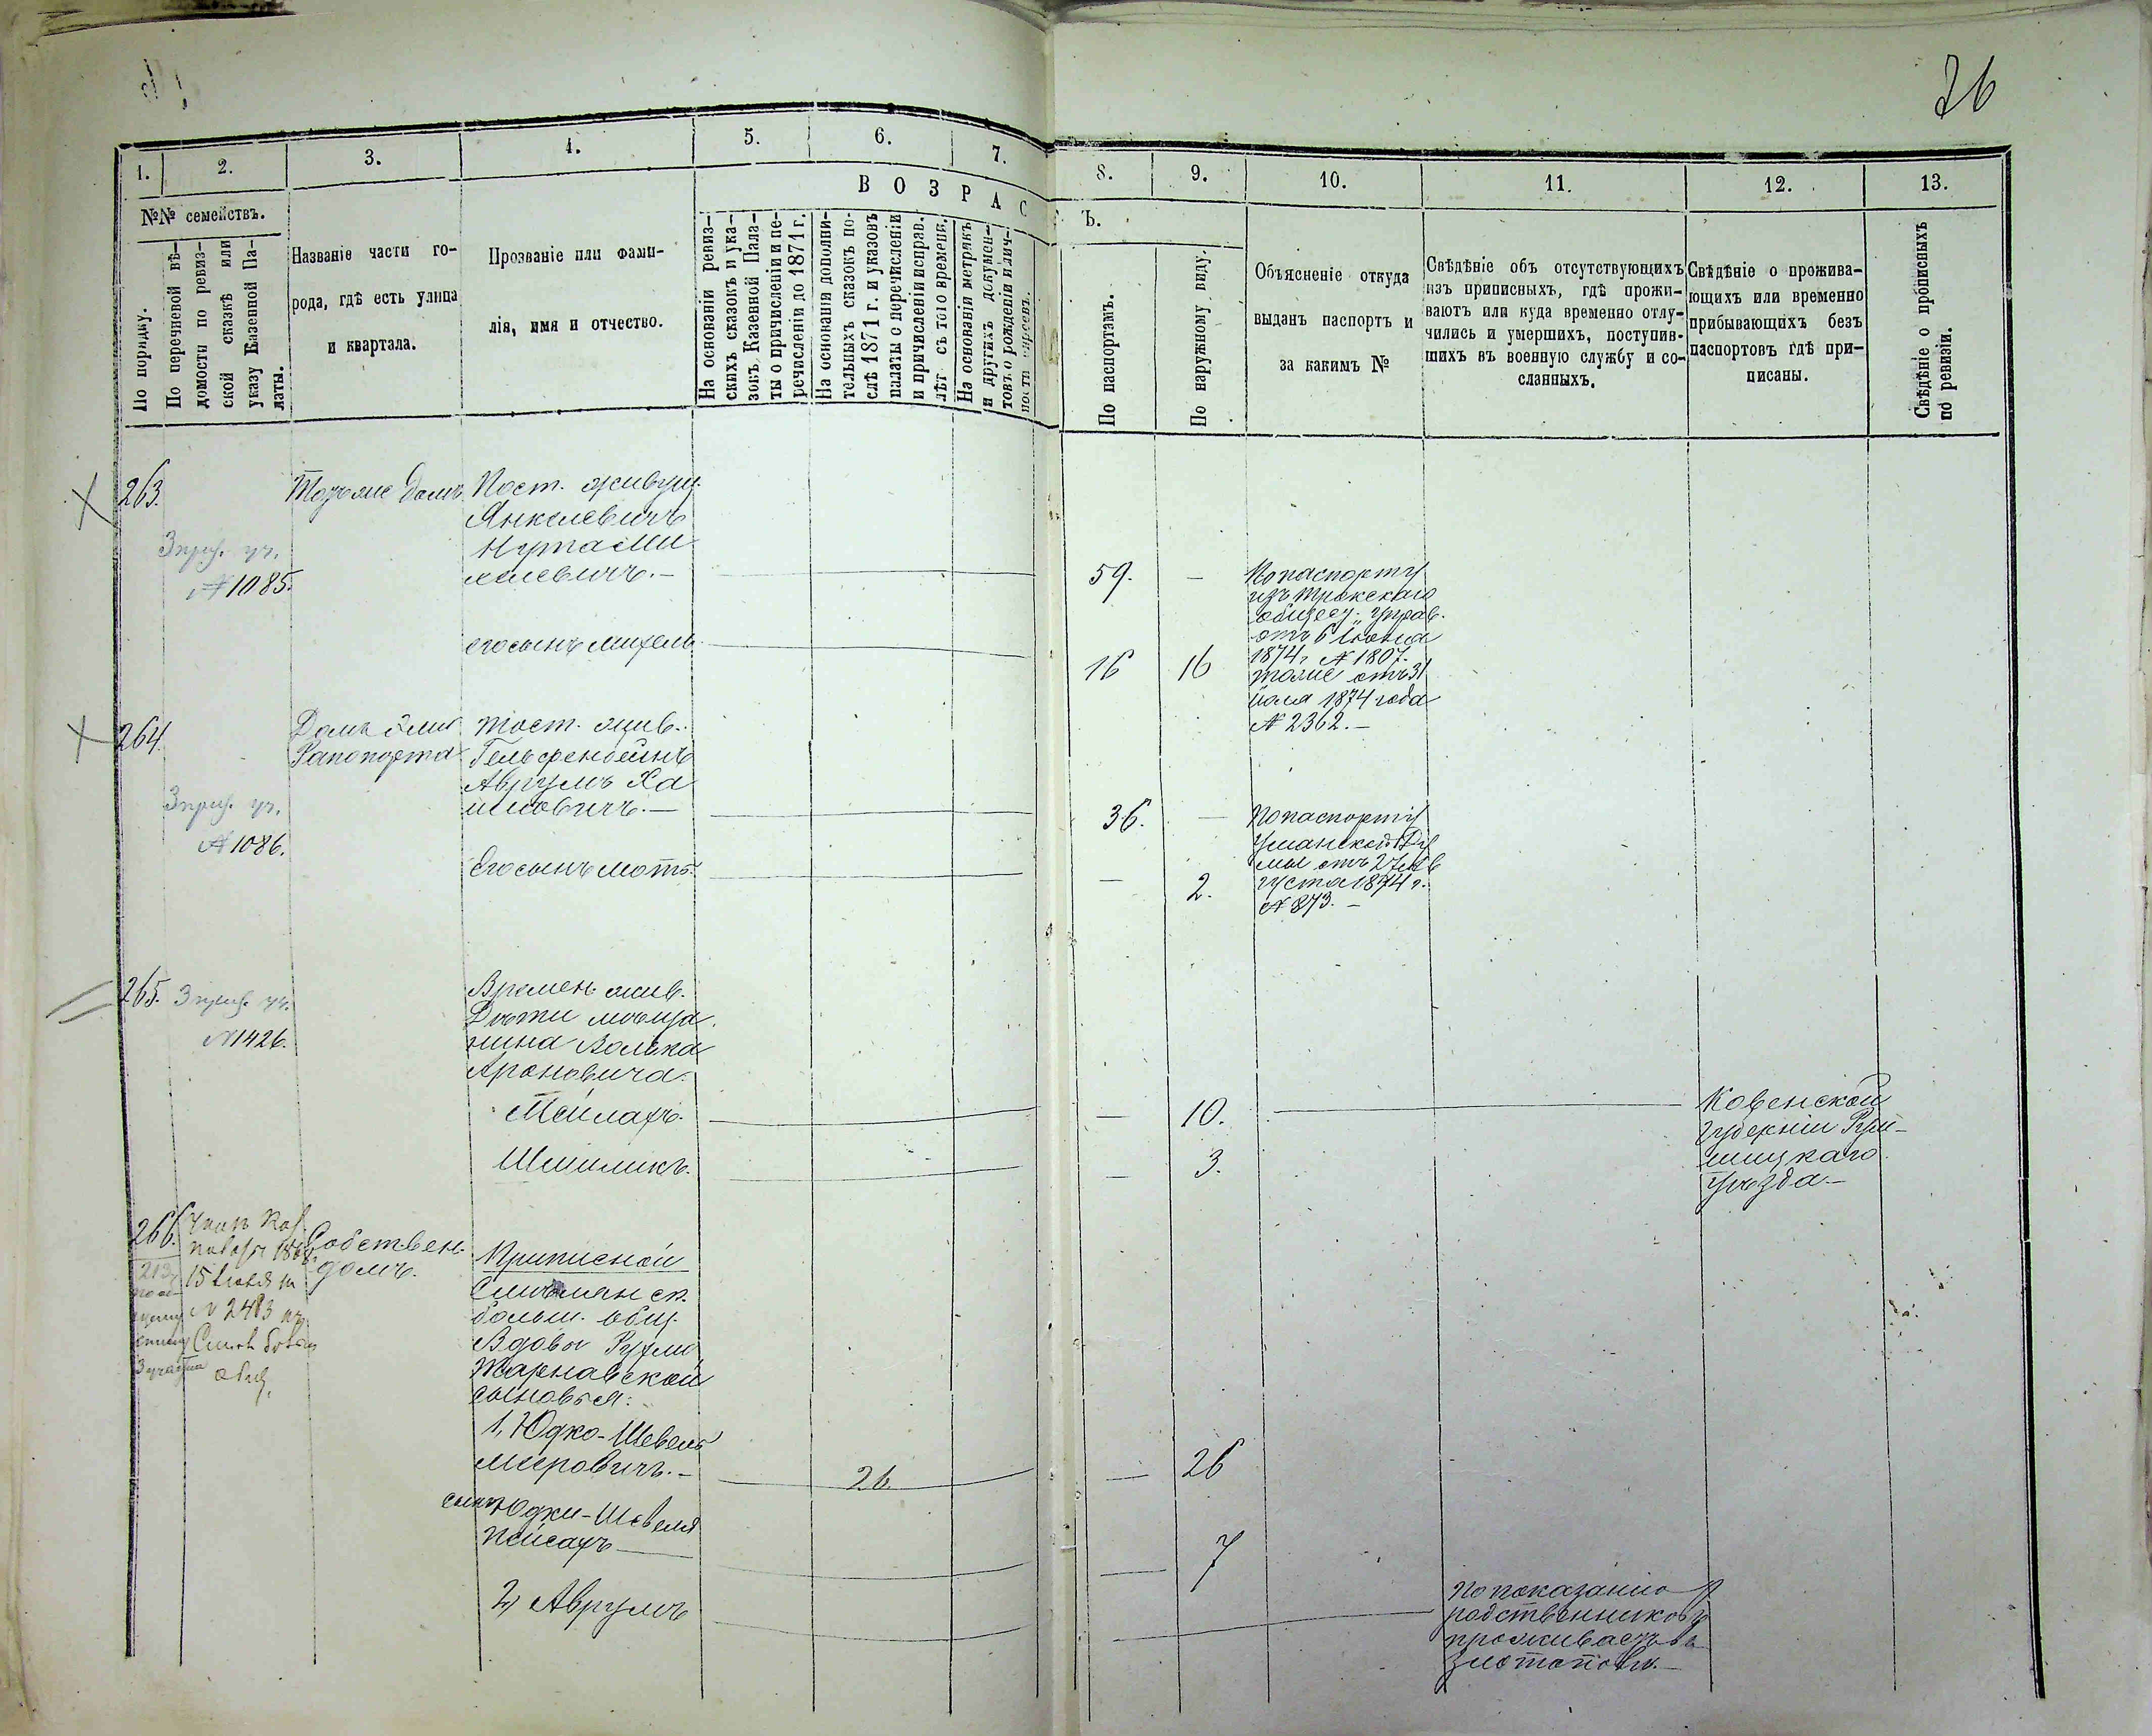 26
1.
2.
3.
4.
5.
6.
7.
8.
9.
10.
11.
12.
13.
№№ семействъ.
ВОЗРАС
Ъ.
По порядку.
По перечневой вѣ-
домости по ревиз-
ской сказкѣ или
указу Казенной Па-
латы.
Названіе части го-
рода, гдѣ есть улица
и квартала.
Прозваніе или фами-
лія, имя и отчество.
На основаніи ревиз-
скихъ сказокъ и ука-
зовъ Казенной Пала-
ты о причисленіи и пе-
речисленіи до 1871 г.
На основаніи дополни-
тельныхъ сказокъ по-
слѣ 1871 г. и указовъ
палаты о перечисленіи
и причисленіи исправ.
лѣт съ того времени.
На основаніи метрикъ
и другихъ докумен-
товъ о рожденіи и лич-
По паспортамъ.
По наружному виду.
Объясненіе откуда
выданъ паспортъ и
за какимъ №
Свѣдѣніе объ отсутствующихъ
изъ приписныхъ, гдѣ прожи-
ваютъ или куда временно отлу-
чились и умершихъ, поступив-
шихъ въ военную службу и со-
сланныхъ.
Свѣдѣніе о прожива-
ющихъ или временно
прибывающихъ безъ
паспортовъ гдѣ при-
писаны.
Свѣдѣніе о прописныхъ
по ревизіи.
263.
№ 1085.
Тотъ же домъ
Пост. живущ.
Янкелевичъ
Нута Ми
хелевичъ.-
59. —
По паспорту
изъ Трокскаго
общес. управ.
отъ 6 Іюня
1874 г. № 1807.
его сынъ Михель
16 16
тоже отъ 31
іюля 1874 года
№ 2362.-
264.
№ 1086.
Домъ
Рапопорта
Пост. жив.
Гельфенбейнъ
Аврумъ Ха
имовичъ.-
36. —
По паспорту
Уманской Ду
мы отъ 27 Ав
густа 1874 г.
№ 873.-
Его сынъ Мотъ.
— 2.
265.
№ 1426.
Времен. жив.
Дѣти мѣща
нина Волька
Ароновича.
Мейлахъ.
— 10.
Ковенской
Губерніи
уѣзда.-
Шмиликъ.
— 3.
266.
15 Іюля
№ 2483
общ.
Собствен.
домъ.
Приписной
Смѣлянск.
больш. общ.
Вдовы Рухли
Жарнавской
сыновья:
1, Юдко-Шевель
Мееровичъ.-
26.
— 26
сынъ Юдки-Шевеля
Пейсахъ
— 7
2, Аврумъ
По показанію
родственниковъ
проживаетъ въ
Златополѣ.-